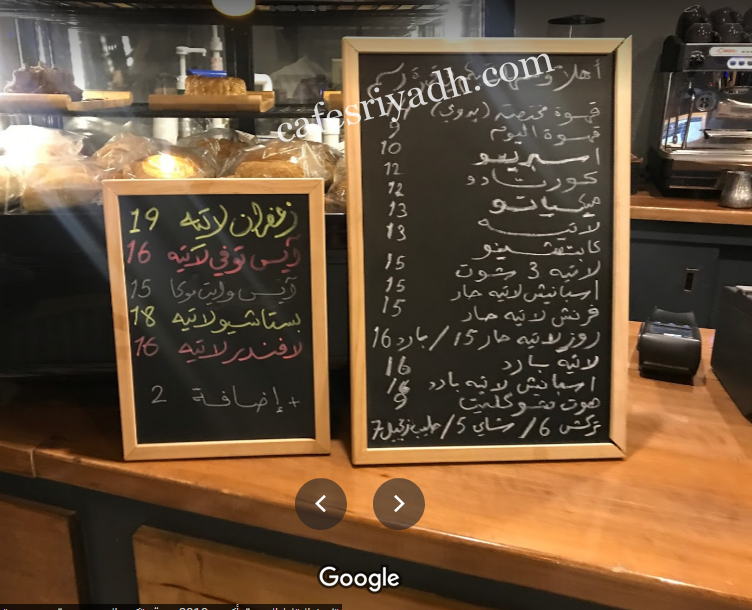 cafesriyadh.com
قهوة مختصة (يدوي)
قهوة اليوم 9
اسبريسو 10
كورتادو 12
ميكياتو 12
لاتيه 13
كابتشينو 13
لاتيه 3 شوت 15
اسبانش لاتيه حار 15
فرنش لاتيه حار 15
روز لاتيه حار 15 / بارد 16
لاتيه بارد 16
اسبانش لاتيه بارد 16
هوت تشوكليت 9
تركش 6 / شاي 5 / حليب زنجبيل 7
زعفران لاتيه 19
آيس توفي لاتيه 16
آيس وايت موكا 15
بستاشيو لاتيه 18
لافندر لاتيه 16
+ إضافة 2
Google